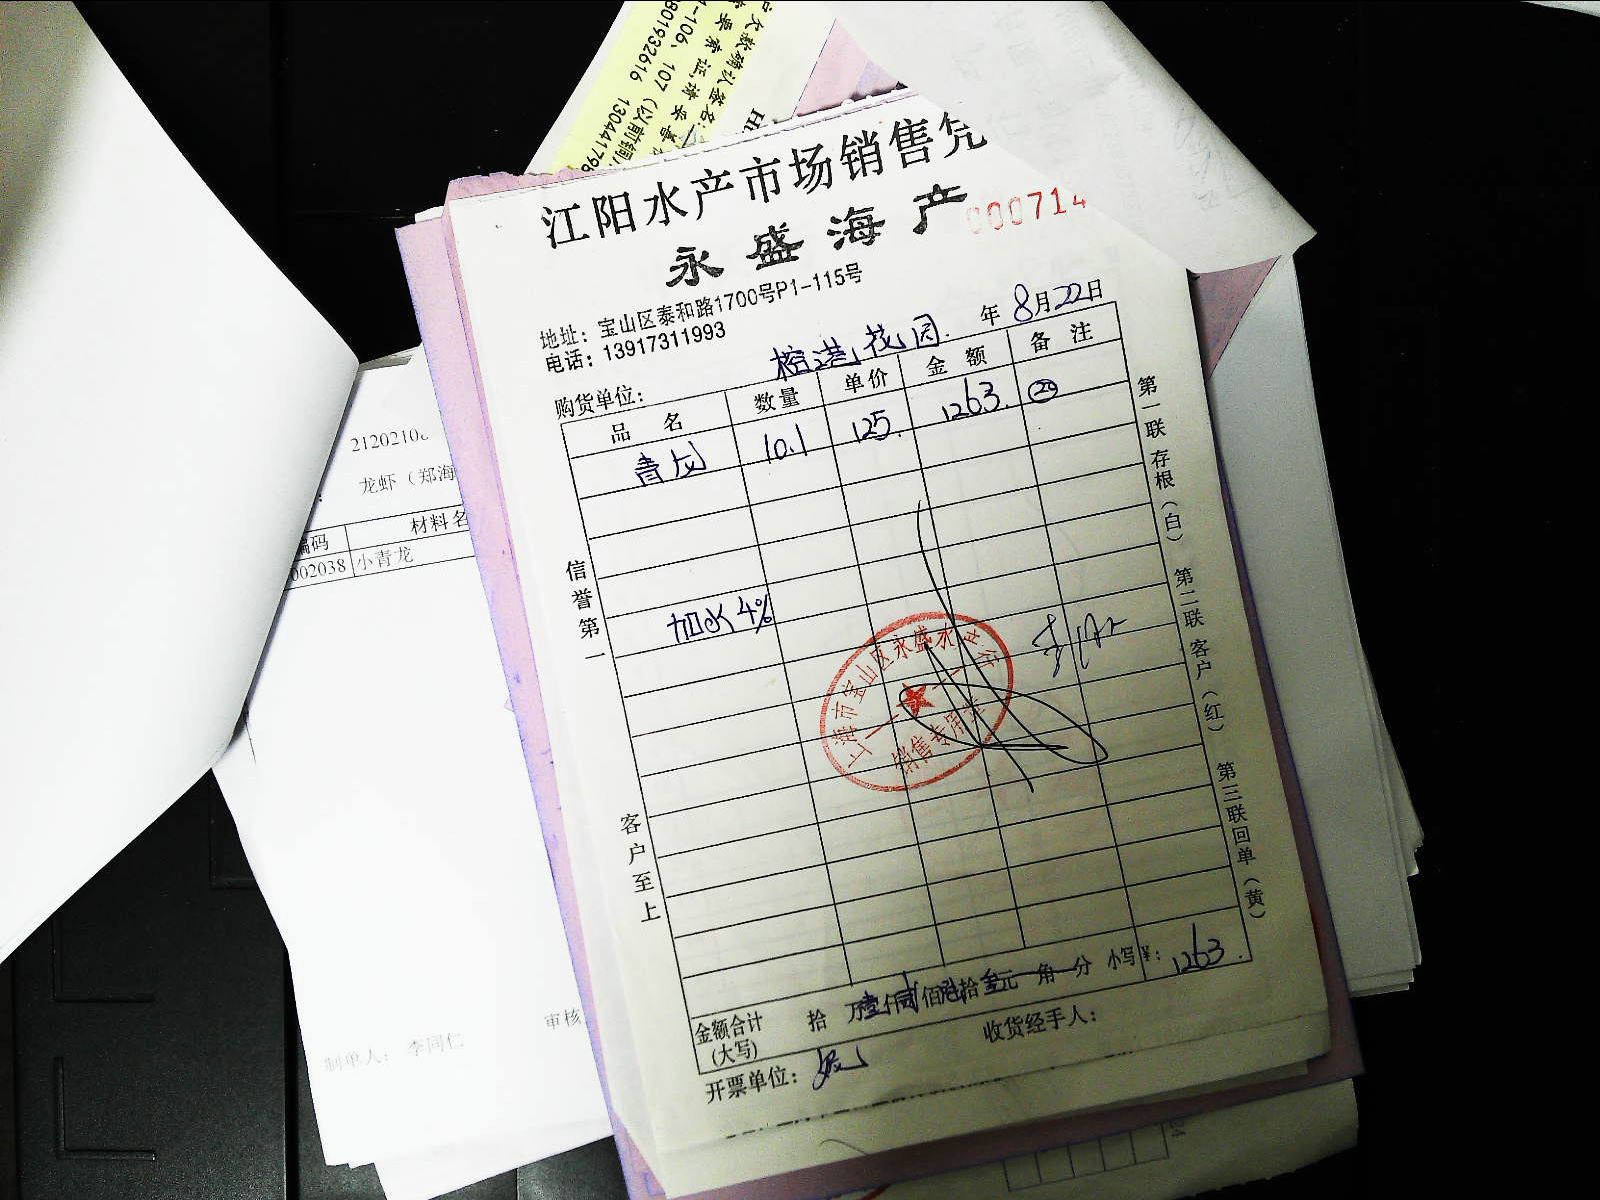 欠款确认签名:
1-106、107 (以前铜
801932616 1304417
江阳水产市场销售凭
永盛海产
000714
地址: 宝山区泰和路1700号P1-115号
电话: 13917311993
年 8月22日
购货单位: 榕港花园.
品 名 数量 单价 金额 备注
青龙 10.1 125. 1263. 20
加水4%
上海市宝山区永盛水产行
销售专用章
信誉第一
客户至上
第一联存根(白) 第二联客户(红) 第三联回单(黄)
金额合计(大写) 拾 万壹仟贰佰陆拾叁元 角 分 小写¥: 1263.
开票单位:
收货经手人:
龙虾(郑海
编码 材料名
002038 小青龙
审核
制单人: 李同仁